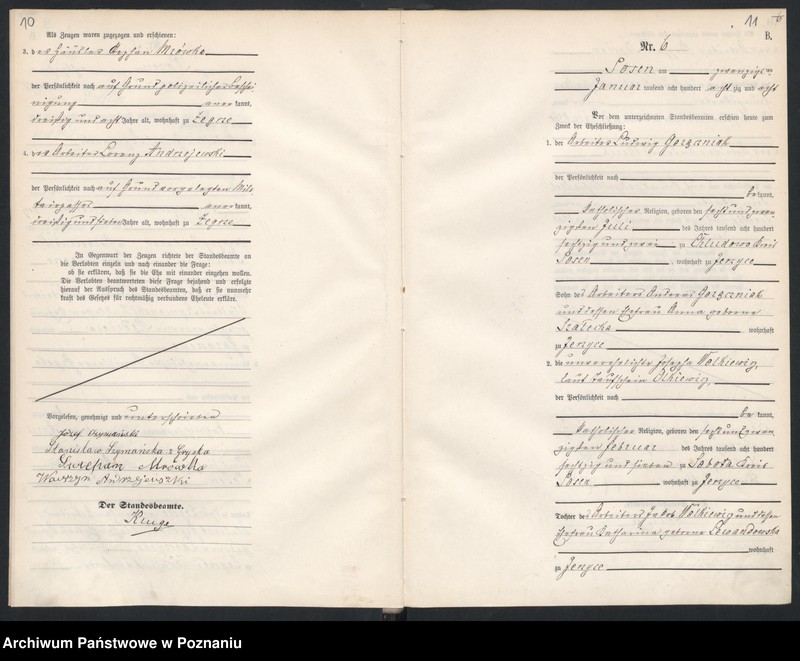 10
Als Zeugen waren zugezogen und erschienen:
3. der Häusler Stephan Mrówka
der Persönlichkeit nach auf Grund polizeilicher Beschei
nigung aner kannt,
dreißig und acht Jahre alt, wohnhaft zu Zegrze
4. der Arbeiter Lorenz Andrzejewski
der Persönlichkeit nach auf Grund vorgelegten Mili
tairpasses aner kannt,
dreißig und sieben Jahre alt, wohnhaft zu Zegrze
In Gegenwart der Zeugen richtete der Standesbeamte an
die Verlobten einzeln und nach einander die Frage:
ob sie erklären, daß sie die Ehe mit einander eingehen wollen.
Die Verlobten beantworteten diese Frage bejahend und erfolgte
hierauf der Ausspruch des Standesbeamten, daß er sie nunmehr
kraft des Gesetzes für rechtmäßig verbundene Eheleute erkläre.
Vorgelesen, genehmigt und unterschrieben
Józef Szymański
Stanisława Szymańska z
Szczepan Mrówka
Wawrzyn Andrzejewski
Der Standesbeamte.
Kruge
11
B.
Nr. 6
Posen am zwanzigsten
Januar tausend acht hundert acht zig und acht
Vor dem unterzeichneten Standesbeamten erschien heute zum
Zweck der Eheschließung:
1. der Arbeiter Ludwig Gorzniak
der Persönlichkeit nach
be kannt,
katholischer Religion, geboren den sechsundzwan
zigsten Juli des Jahres tausend acht hundert
sechzig und zwei zu Chludowo Kreis
Posen, wohnhaft zu Jerzyce
Sohn des Arbeiters Andreas Gorzniak
und dessen Ehefrau Anna geborne
wohnhaft
zu Jerzyce
2. die unverehelichte Josepha Walkiewicz,
laut Taufschein Olkiewicz,
der Persönlichkeit nach
be kannt,
katholischer Religion, geboren den sechsundzwan
zigsten Februar des Jahres tausend acht hundert
sechzig und sieben zu Sobota Kreis
Posen wohnhaft zu Jerzyce
Tochter des Arbeiters Jakob Walkiewicz und dessen
Ehefrau Katharina geborne Lewandowska
wohnhaft
zu Jerzyce
Archiwum Państwowe w Poznaniu